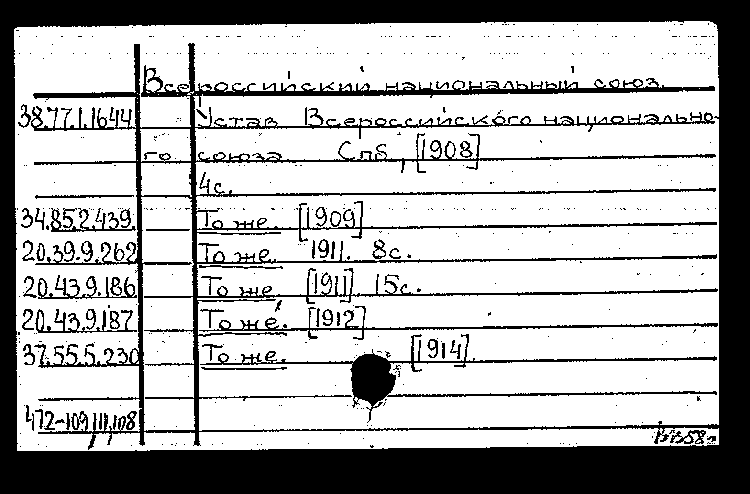 Всероссийский национальный союз.
38.77.1.1644 Устав Всероссийского национально-
го союза. Спб, [1908]
4с.
34.85.2.439. То же. [1909]
20.39.9.262 То же. 1911. 8с.
20.43.9.186 То же [1911] 15с.
20.43.9.187 То же. [1912]
37.55.5.230 То же. [1914].
472-109,111,108